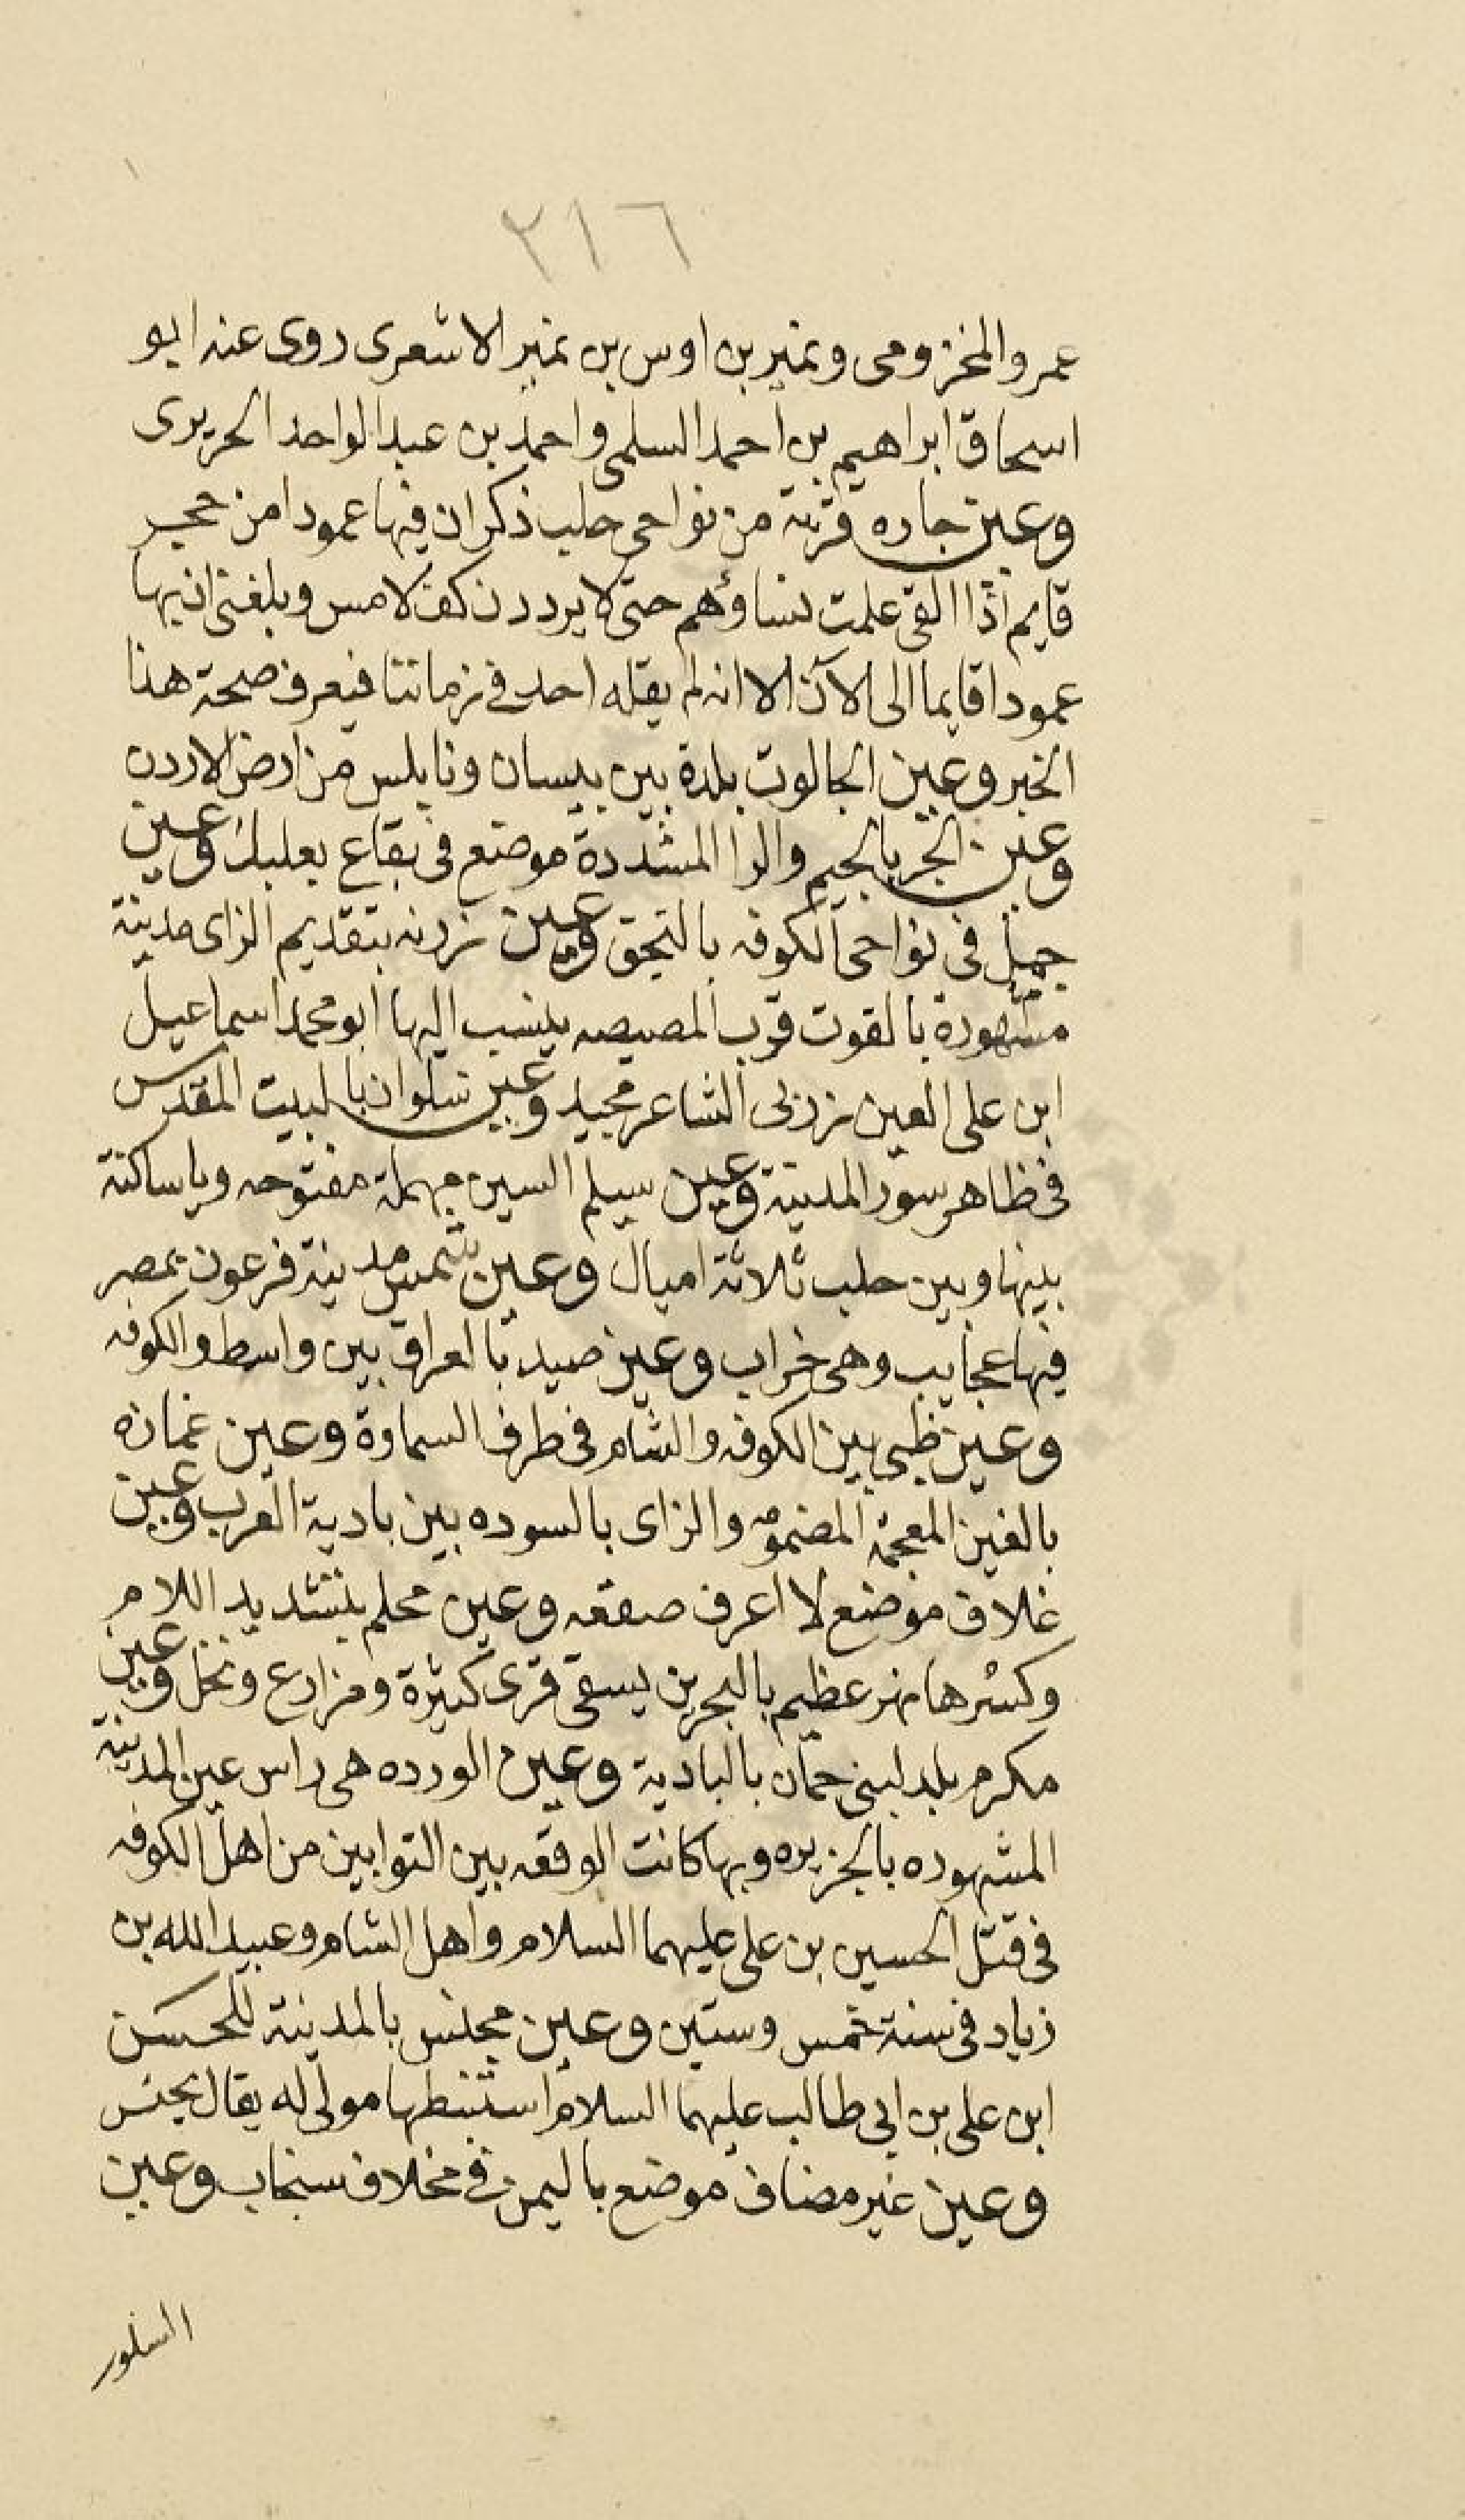 ٢١٦
عمرو المخزومى ونمير بن اوس بن نمير الاشعرى روى عنه ابو
اسحاق ابراهيم بن احمد السلمى واحمد بن عبد الواحد الحريرى
وعين جاره قرية من نواحى حلب ذكران فيها عمودا من حجر
قايم اذا القى علمت نساؤهم حتى لا يرددن كف لامس وبلغنى ان بها
عمودا قايما الى الآن الا انه لم يقله احد فى زماننا فيعرف صحة هذا
الخبر وعين الجالوت بلدة بين بيسان ونابلس من ارض الاردن
وعين الجر بالجيم والرا المشددة موضع فى بقاع بعلبك وعين
جميل فى نواحى الكوفه بالنجف وعين زربه بتقديم الزاى مدينة
مشهورة بالقوت قرب المصيصه ينسب اليها ابو محمد اسماعيل
ابن على العين زربى الشاعر مجيد وعين سلوان بالبيت المقدس
فى ظاهر سور المدينة وعين سيلم السين مهملة مفتوحه ويا ساكنة
بينها وبين حلب ثلاثة اميال وعين شمس مدينة فرعون بمصر
فيها عجايب وهى خراب وعين صيد بالعراق بين واسط والكوفه
وعين ظبى بين الكوفه والشام فى طرف السماوة وعين غمازه
بالغين المعجمة المضمومه والزاى بالسوده بين بادية العرب وعين
غلاق موضع لا اعرف صقعه وعين محلم بتشديد اللام
وكسرها نهر عظيم بالبحرين يسقى قرى كثيرة ومزارع ونخل وعين
مكرم بلد لبنى حمان بالبادية وعين الورده هى راس عين المدينة
المشهوره بالجزيره وبها كانت الوقعه بين التوابين من اهل الكوفه
فى قتل الحسين بن على عليهما السلام واهل الشام وعبيد الله بن
زياد فى سنة خمس وستين وعين مجلس بالمدينة للحسن
ابن على بن ابى طالب عليهما السلام استنبطها مولى له يقال يجنس
وعين غير مضاف موضع باليمن فى مخلاف سنحاب وعين
السلور